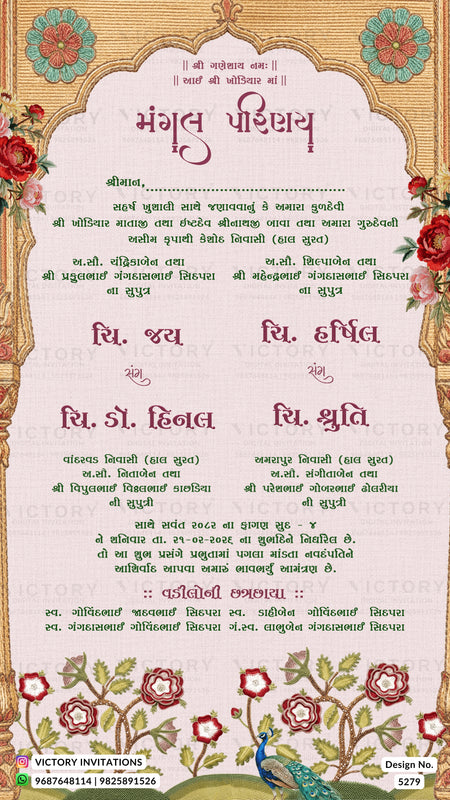 || શ્રી ગણેશાય નમઃ ||
|| આઈ શ્રી ખોડિયાર માં ||
મંગલ પરિણય
શ્રીમાન,
સહર્ષ ખુશાલી સાથે જણાવવાનું કે અમારા કુળદેવી
શ્રી ખોડિયાર માતાજી તથા ઈષ્ટદેવ શ્રીનાથજી બાવા તથા અમારા ગુરુદેવની
અસીમ કૃપાથી કેશોદ નિવાસી (હાલ સુરત)
અ.સૌ. ચંદ્રિકાબેન તથા
શ્રી પ્રફુલભાઈ ગંગદાસભાઈ સિદપરા
ના સુપુત્ર
અ.સૌ. શિલ્પાબેન તથા
શ્રી મહેન્દ્રભાઈ ગંગદાસભાઈ સિદપરા
ના સુપુત્ર
ચિ. જય
સંગ
ચિ. ડૉ. હિનલ
ચિ. હર્ષિલ
સંગ
ચિ. શ્રુતિ
વાંદરવડ નિવાસી (હાલ સુરત)
અ.સૌ. નિતાબેન તથા
શ્રી વિપુલભાઈ વિઠ્ઠલભાઈ કાછડિયા
ની સુપુત્રી
અમરાપુર નિવાસી (હાલ સુરત)
અ.સૌ. સંગીતાબેન તથા
શ્રી પરેશભાઈ ગોબરભાઈ ઢોલરીયા
ની સુપુત્રી
સાથે સવંત ૨૦૮૨ ના ફાગણ સુદ - ૪
ને શનિવાર તા. ૨૧-૦૨-૨૦૨૬ ના શુભદિને નિર્ધારેલ છે.
તો આ શુભ પ્રસંગે પ્રભુતામાં પગલા માંડતા નવદંપતિને
આશિર્વાદ આપવા અમારું ભાવભર્યું આમંત્રણ છે.
:: વડીલોની છત્રછાયા ::
સ્વ. ગોવિંદભાઈ જાદવભાઈ સિદપરા સ્વ. ડાહીબેન ગોવિંદભાઈ સિદપરા
સ્વ. ગંગદાસભાઈ ગોવિંદભાઈ સિદપરા ગં.સ્વ. લાભુબેન ગંગદાસભાઈ સિદપરા
VICTORY INVITATIONS
9687648114 | 9825891526
Design No.
5279